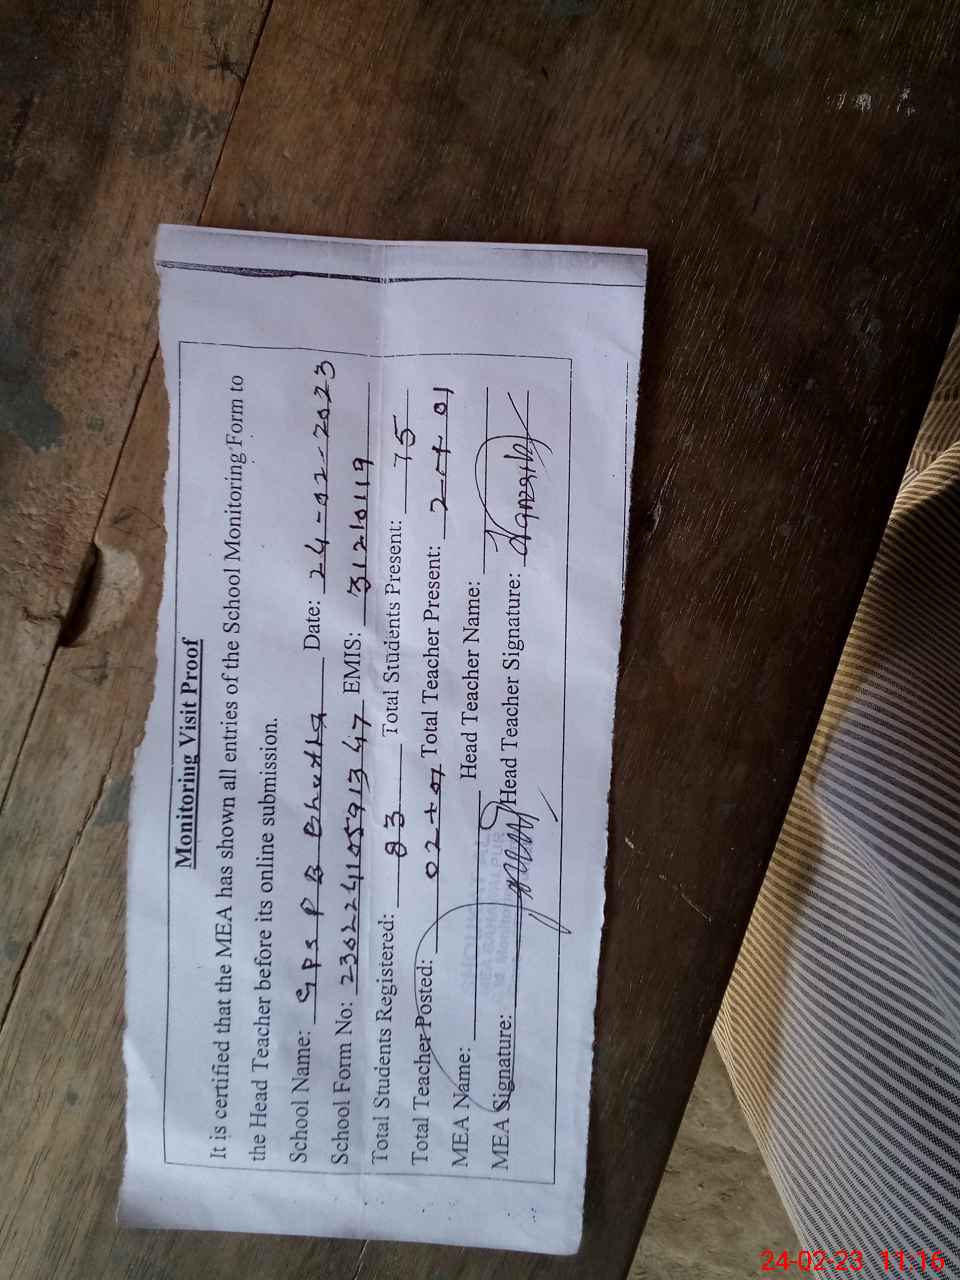 Monitoring Visit Proof
It is certified that the MEA has shown all entries of the School Monitoring Form to
the Head Teacher before its online submission.
School Name: GPS P B Bhutta Date: 24-02-2023
School Form No: 230224105913 47 EMIS: 31210119
Total Students Registered: 83 Total Students Present: 75
Total Teacher Posted: 02+01 Total Teacher Present: 2+01
MEA Name: Head Teacher Name:
MEA Signature: Head Teacher Signature:
24-02-23 11:16